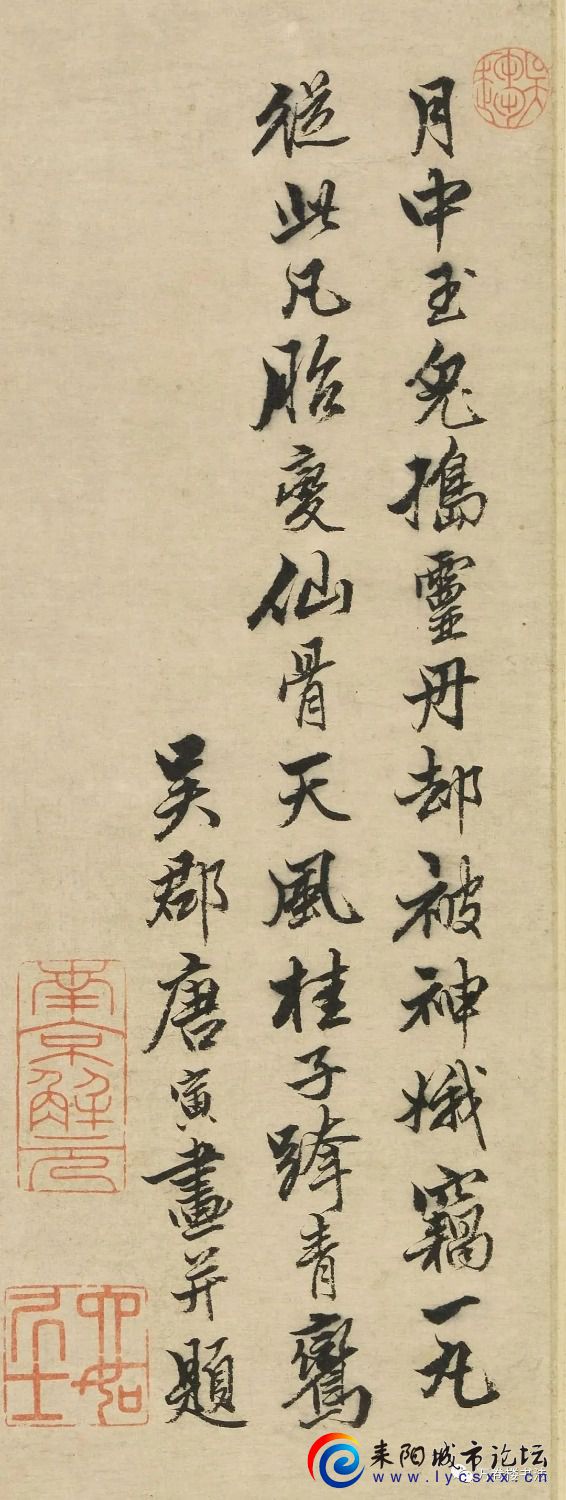 月中玉兔搗靈丹却被神娥竊一丸
從此凡胎變仙骨天風桂子跨青鸞
吳郡唐寅畫并題
南京解元
六如居士
耒阳城市论坛
www.lycsxx.cn